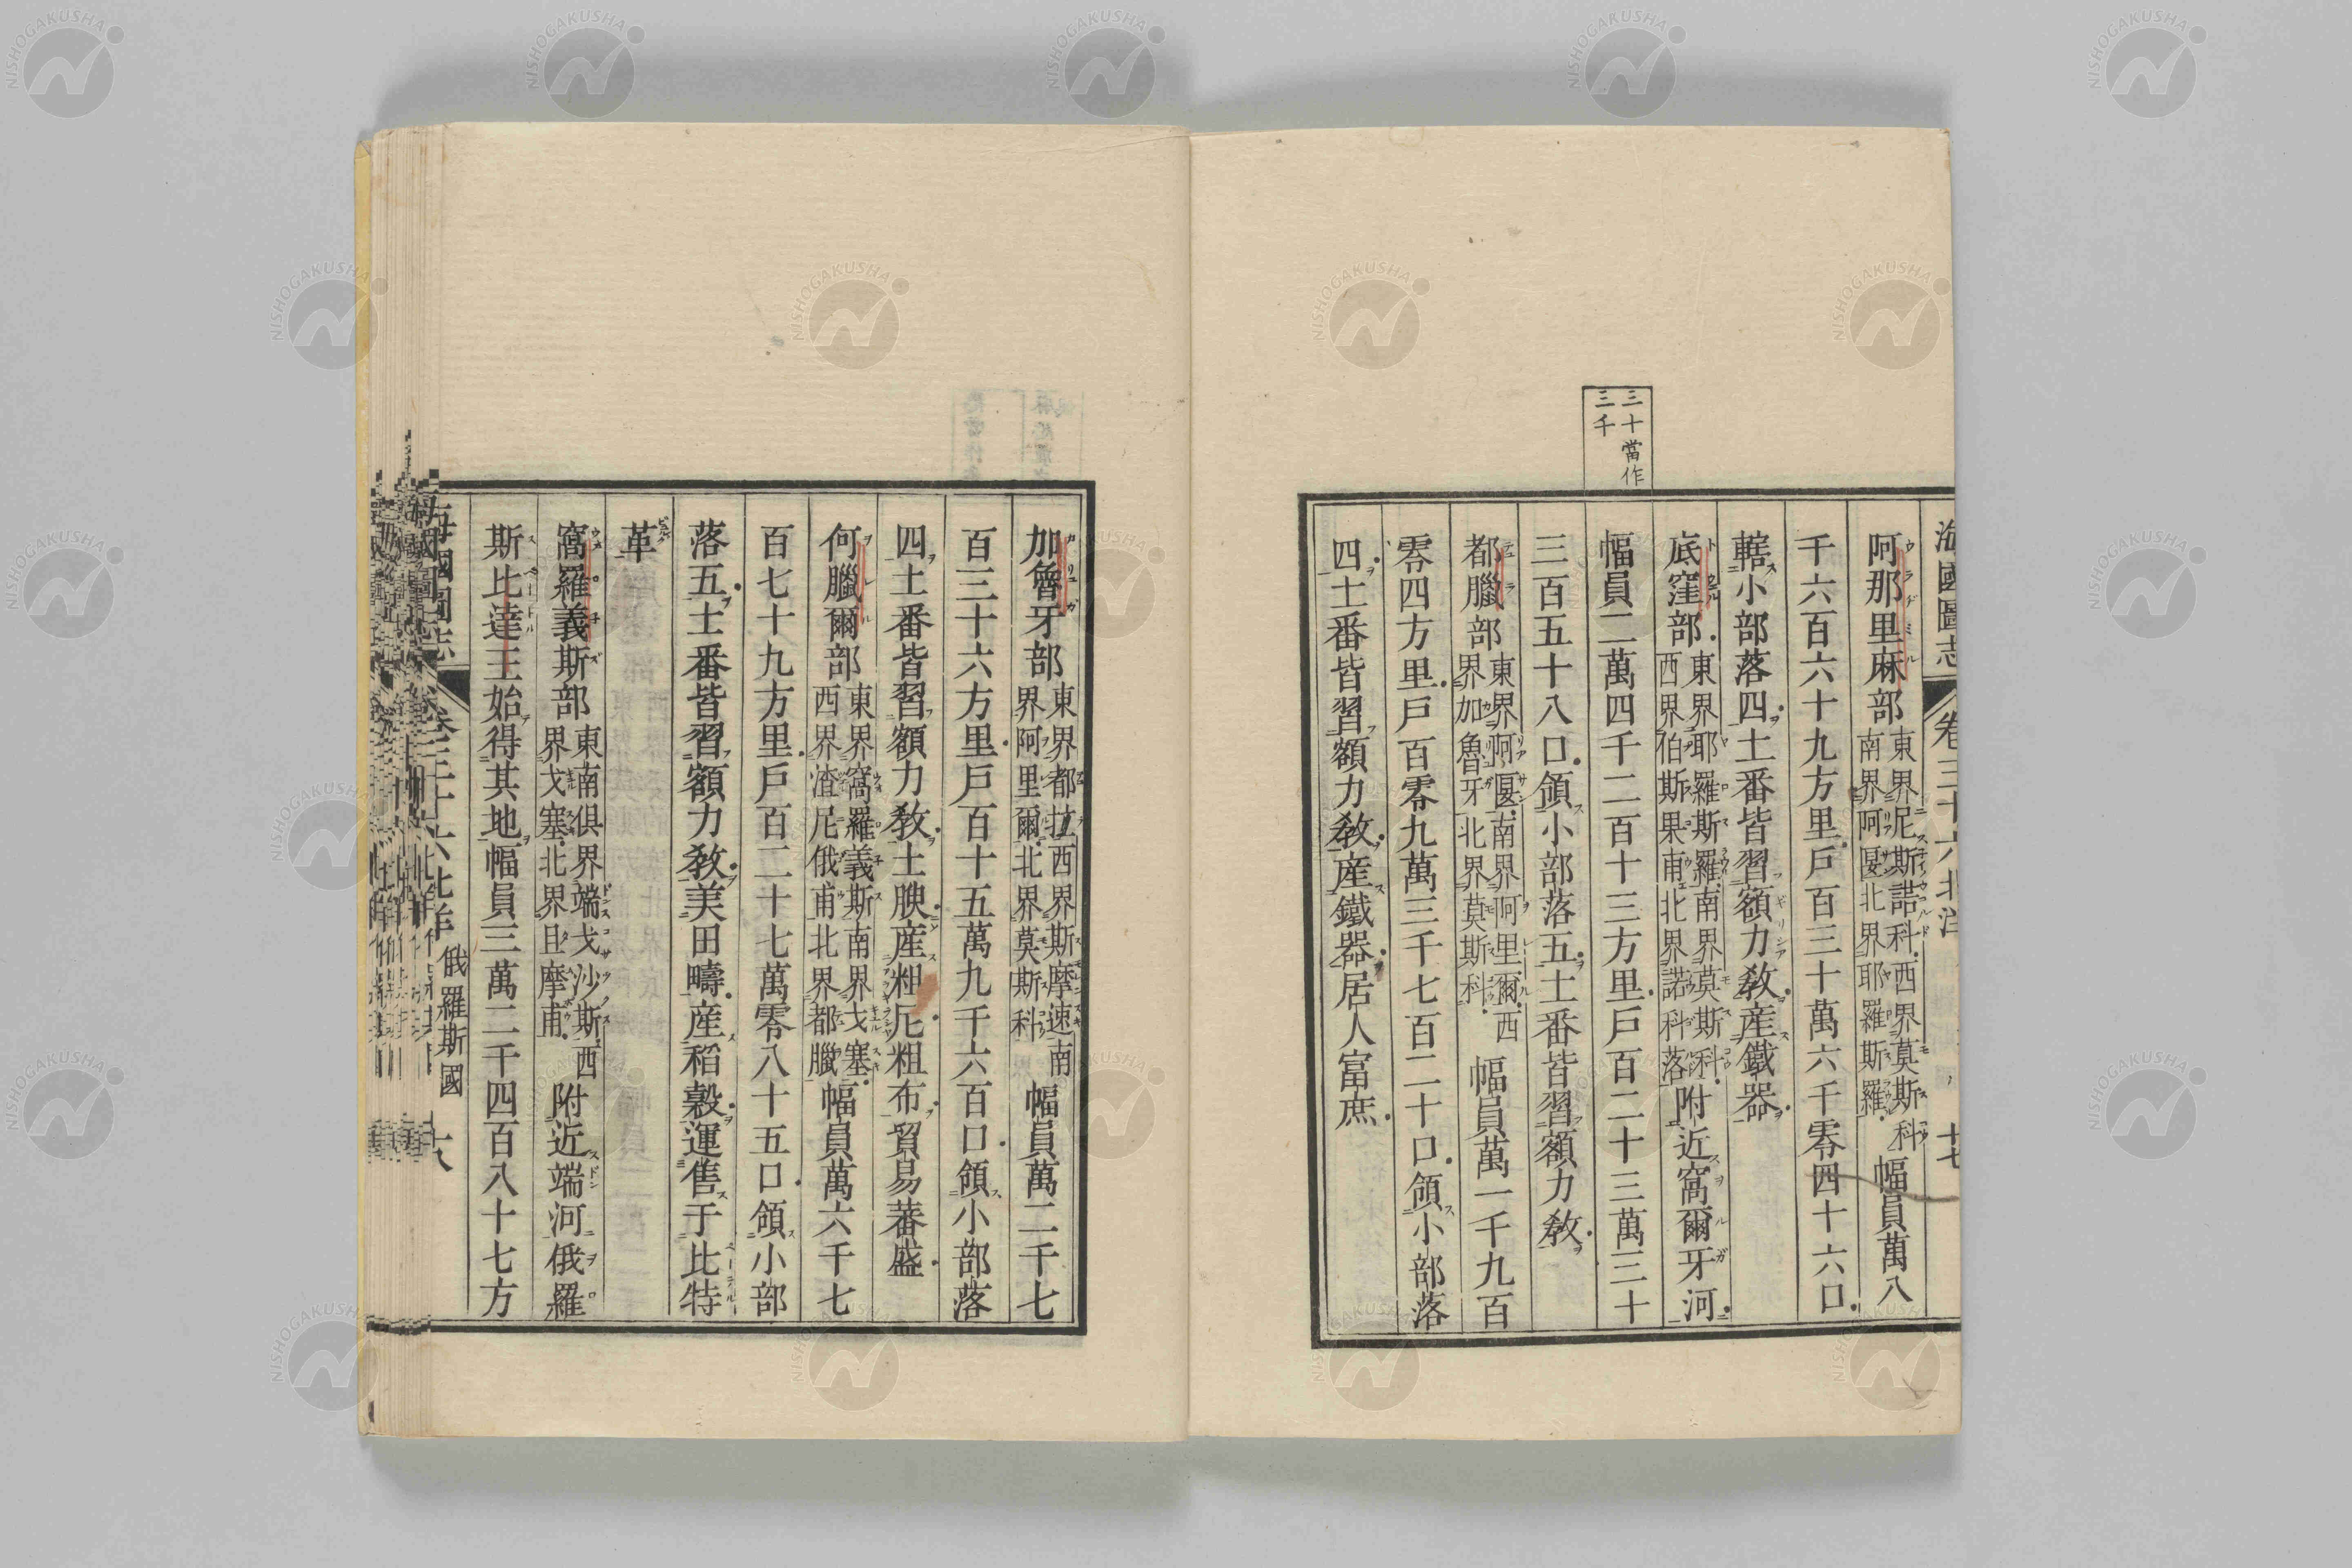 三十當作
三千
海國圖志 卷三十六 北洋 十七
阿那里麻部 東界尼斯諾科西界莫斯科 南界阿匽北界耶羅斯羅 幅員萬八
千六百六十九方里戶百三十萬六千零四十六口
轄小部落四土番皆習額力教產鐵器
底窪部 東界耶羅斯羅南界莫斯科 西界伯斯果甫北界諾科落 附近窩爾牙河
幅員二萬四千二百十三方里戶百二十三萬三十
三百五十八口領小部落五土番皆習額力教
都臘部 東界阿匽南界阿里爾西 界加魯牙北界莫斯科 幅員萬一千九百
零四方里戶百零九萬三千七百二十口領小部落
四土番皆習額力教產鐵器居人富庶
加魯牙部 東界都拉西界斯摩速南 界阿里爾北界莫斯科 幅員萬二千七
百三十六方里戶百十五萬九千六百口領小部落
四土番皆習額力教土腴產粗厄粗布貿易蕃盛
何臘爾部 東界窩羅義斯南界戈塞 西界渣尼俄甫北界都臘 幅員萬六千七
百七十九方里戶百二十七萬零八十五口領小部
落五土番皆習額力教美田疇產稻穀運售于比特
革
窩羅義斯部 東南俱界端戈沙斯西 界戈塞北界且摩甫 附近端河俄羅
斯比達王始得其地幅員三萬二千四百八十七方
海國圖志 卷三十六 北洋 俄羅斯國 十八